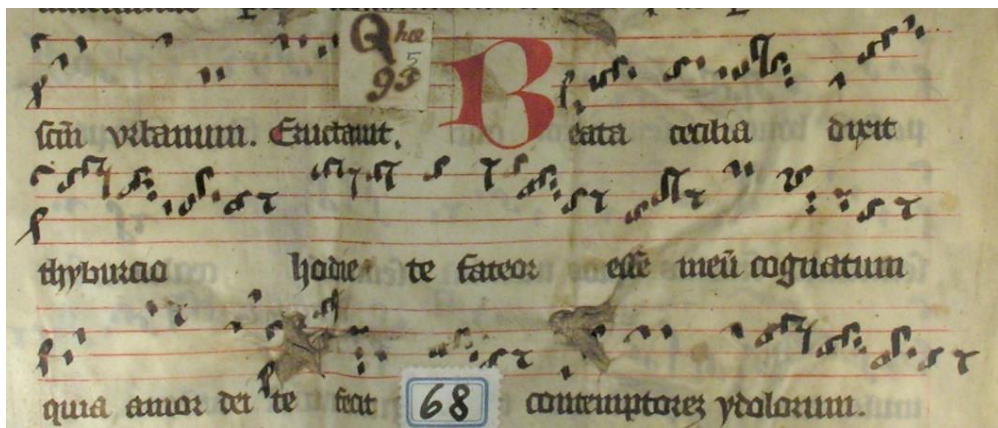 Q hec
5
93
sctm vrbanum. Eructauit. Beata cecilia dixit
thyburcio hodie te fateor esse meū cognatum
quia amor dei te fecit contemptorez ydolorum.
68